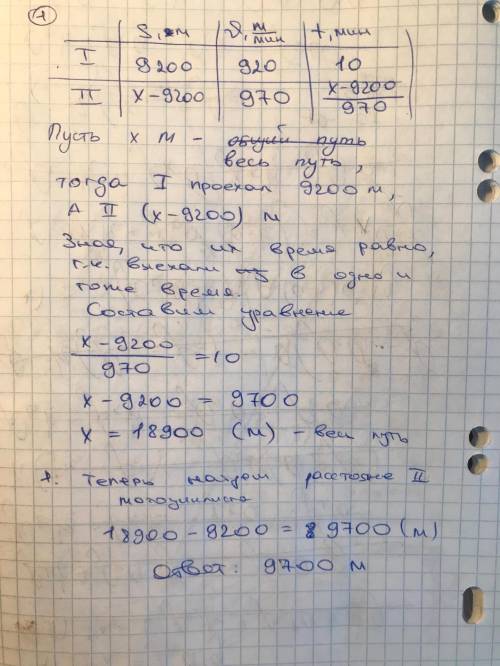 1
S, м | ϑ, м/мин | t, мин
I | 9200 | 920 | 10
II | x-9200 | 970 | x-9200/970
Пусть x м - общий путь
весь путь,
тогда I проехал 9200 м,
А II (x-9200) м
Зная, что их время равно,
т.к. выехали в одно и
тоже время.
Составим уравнение
x-9200/970 = 10
x - 9200 = 9700
x = 18900 (м) - весь путь
Теперь найдем расстояние II
мотоциклиста
18900 - 9200 = 9700 (м)
Ответ: 9700 м